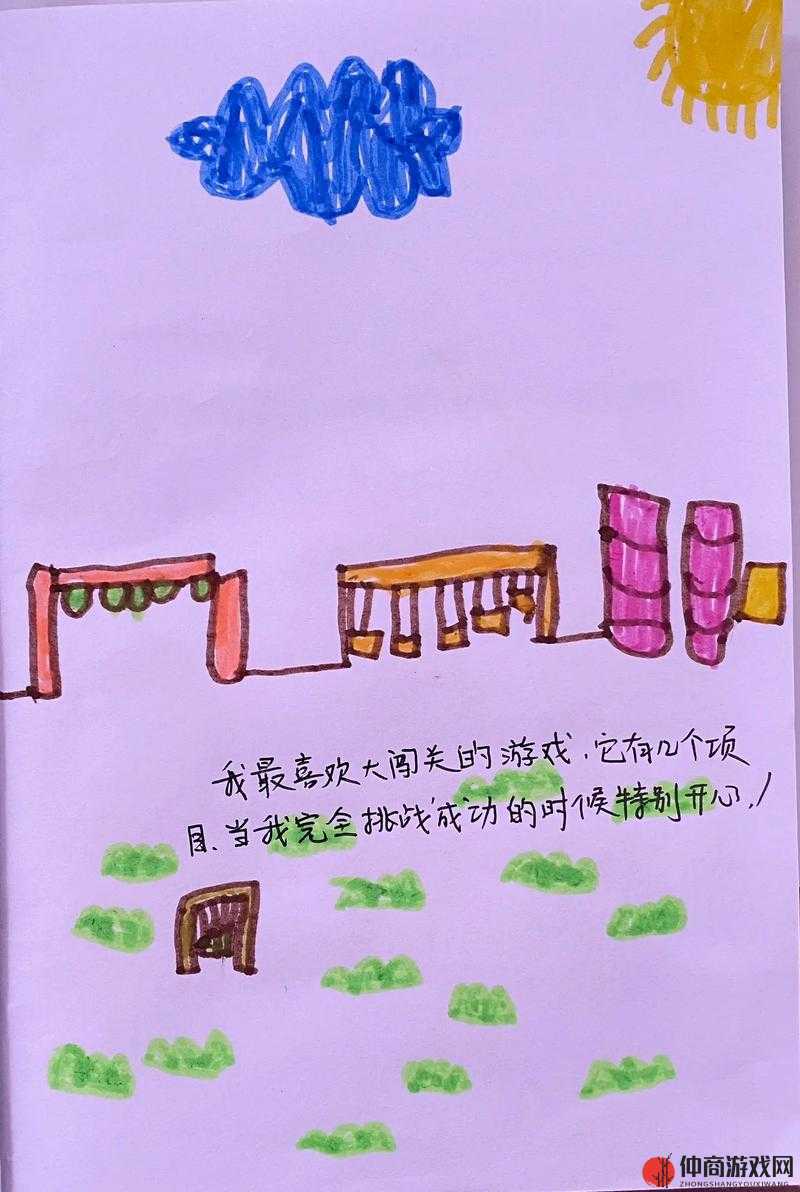 我最喜欢大闯关的游戏，它有几个项
目、当我完全挑战成功的时候特别开心！
仲商游戏网
ZHONGSHANGYOUXIWANG